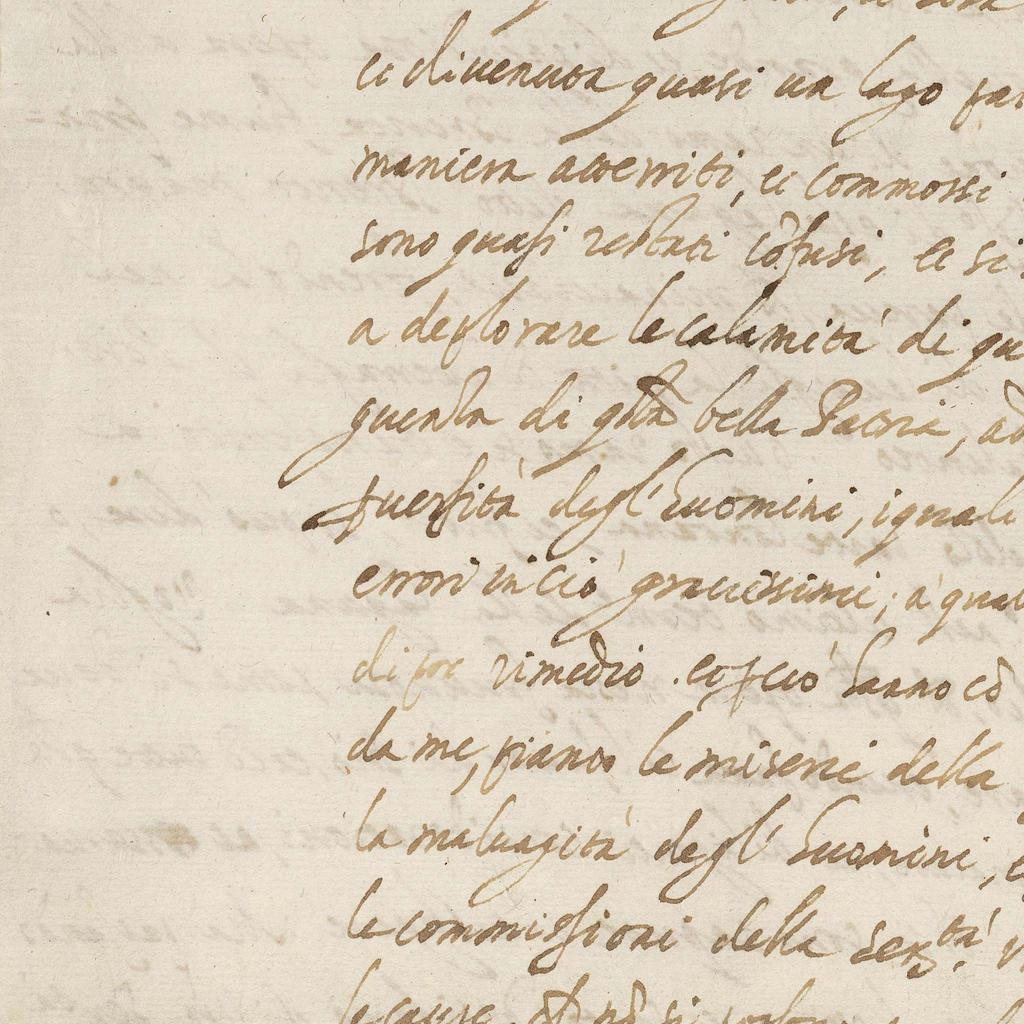 et divenuta quasi un lago
maniera atterriti, et commossi
sono quasi restati cōfusi, et si
a deplorare le calamità di
di qsta bella Patria,
ꝑversità degl'huomini, i quali
errori in ciò gravissimi, à
di por rimedio. et ꝑ ciò hanno cō
da me, pianto le miserie della
la malvagità degl'huomini,
le commissioni della sertà
le cause, nō si